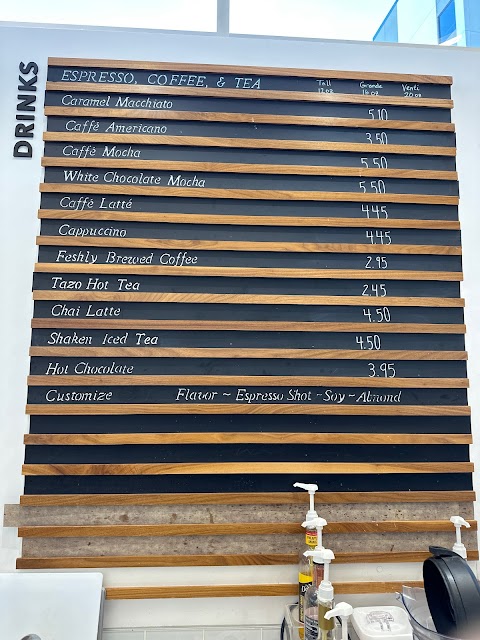 DRINKS
ESPRESSO, COFFEE, & TEA Tall 12 oz Grande 16 oz Venti 20 oz
Caramel Macchiato 5.10
Caffé Americano 3.50
Caffé Mocha 5.50
White Chocolate Mocha 5.50
Caffé Latté 4.45
Cappuccino 4.45
Feshly Brewed Coffee 2.95
Tazo Hot Tea 2.45
Chai Latte 4.50
Shaken Iced Tea 4.50
Hot Chocolate 3.95
Customize Flavor ~ Espresso Shot ~ Soy ~ Almond